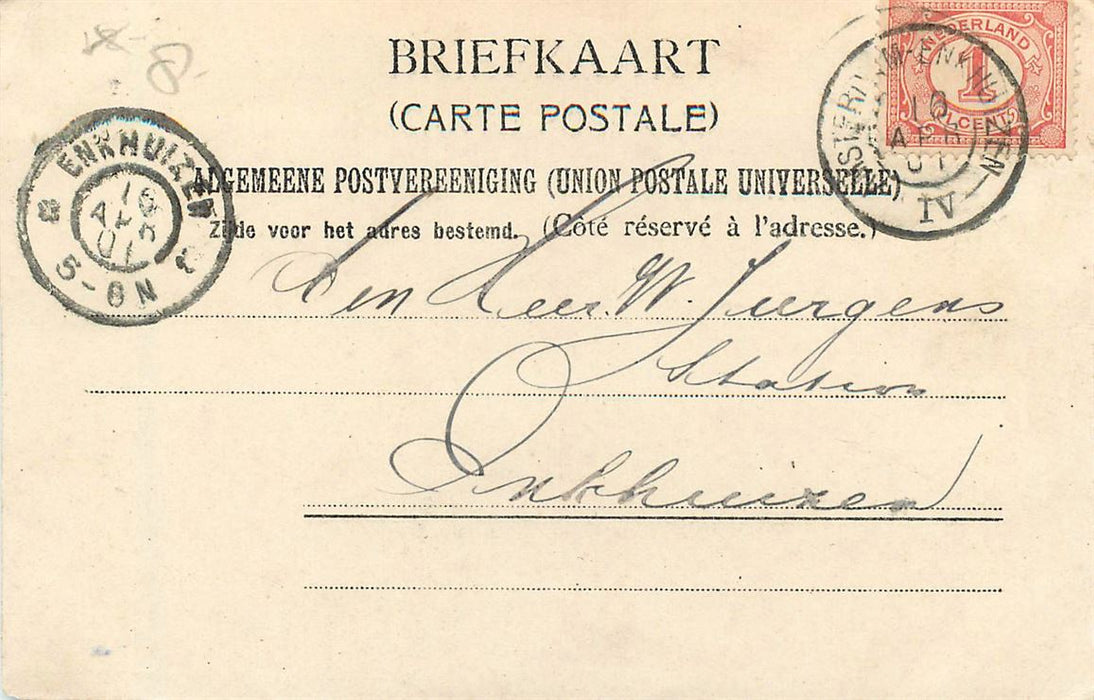 8
BRIEFKAART
(CARTE POSTALE)
ALGEMEENE POSTVEREENIGING (UNION POSTALE UNIVERSELLE)
Zijde voor het adres bestemd. (Côté réservé à l'adresse.)
NEDERLAND
1
CENT
ENKHUIZEN
IV
16
APR
01
ENKHUIZEN
16
APR
01
5-6N
Den Heer W. Jurgens
Station
Enkhuizen